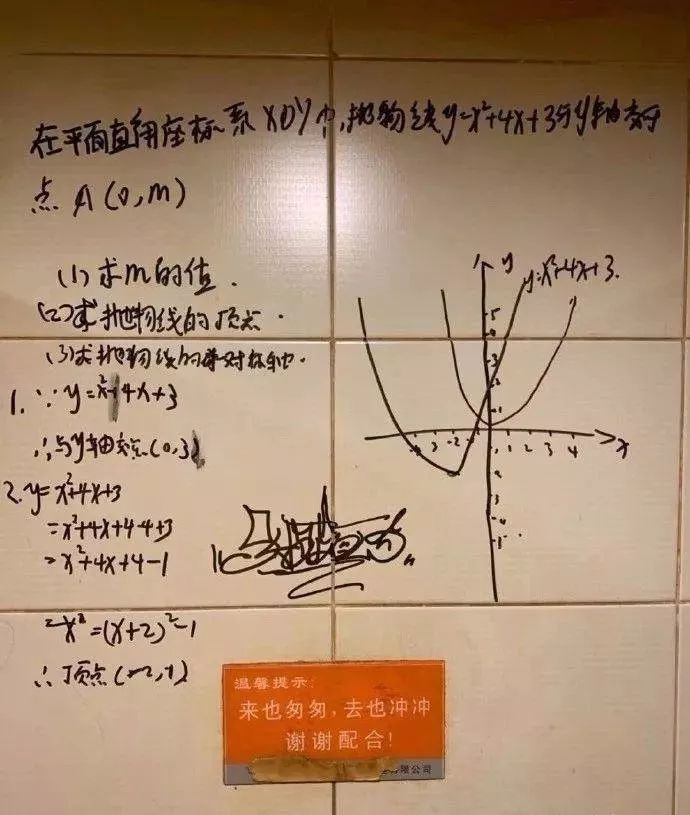 在平面直角座标系XOY中,抛物线y=x²+4x+3与y轴交于
点A(0,m)
(1)求m的值.
(2)求抛物线的顶点.
(3)求抛物线的对称轴.
1. ∵y=x²+4x+3
∴与y轴交点(0,3)
2. y=x²+4x+3
=x²+4x+4-4+3
=x²+4x+4-1
=(x+2)²-1
∴顶点(-2,-1)
y
y=x²+4x+3.
x
1 2 3 4
温馨提示:
来也匆匆,去也冲冲
谢谢配合!
有限公司